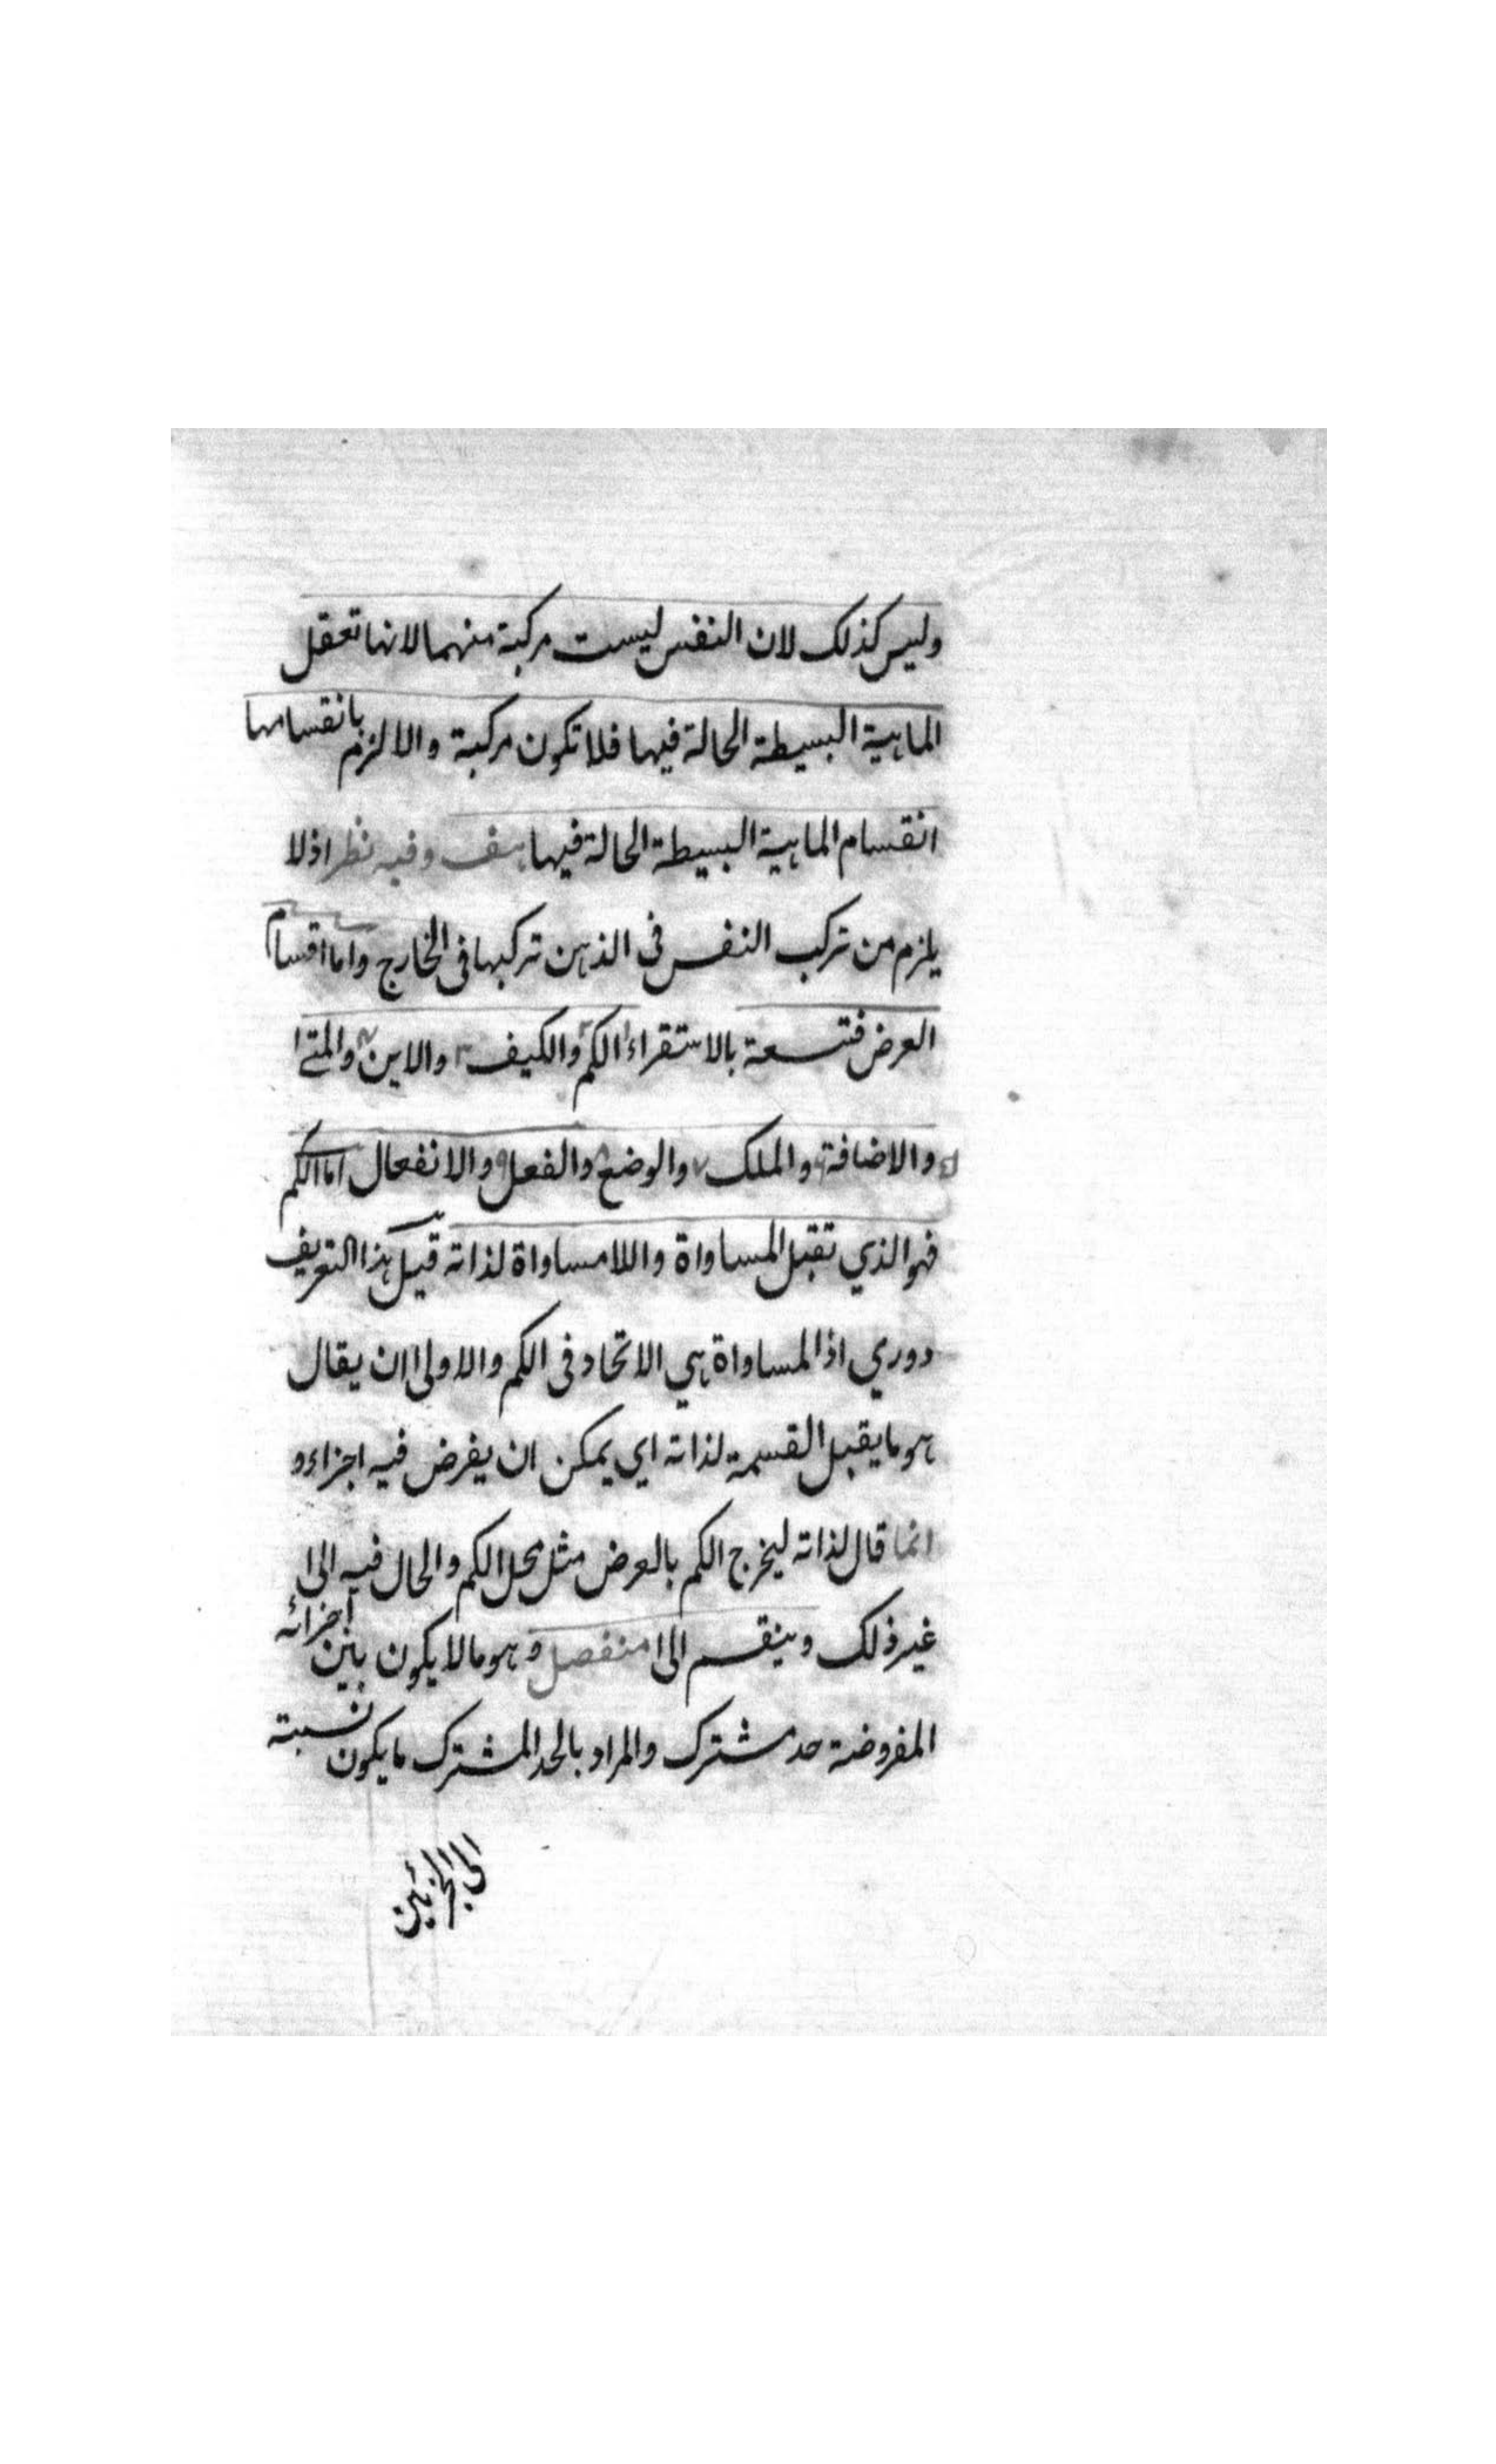 وليس كذلك لان النفس ليست مركبة منهما لانها تعقل
الماهية البسيطة الحالة فيها فلا تكون مركبة والا لزم بانقسامها
انقسام الماهية البسيطة الحالة فيها هف وفيه نظر اذ لا
يلزم من تركب النفس فى الذهن تركبها فى الخارج واما اقسام
العرض فتسعة بالاستقراء الكم والكيف والاين والمتى
والاضافة والملك والوضع والفعل والانفعال اما الكم
فهو الذي تقبل المساواة واللامساواة لذاته قيل هذا التعريف
دوري اذ المساواة هي الاتحاد فى الكم والاولى ان يقال
هو ما يقبل القسمة لذاته اي يمكن ان يفرض فيه اجزاء و
انما قال لذاته ليخرج الكم بالعرض مثل محل الكم والحال فيه الى
غير ذلك وينقسم الى منفصل وهو ما لا يكون بين اجزائه
المفروضة حد مشترك والمراد بالحد المشترك ما يكون نسبته
الى الجزئين